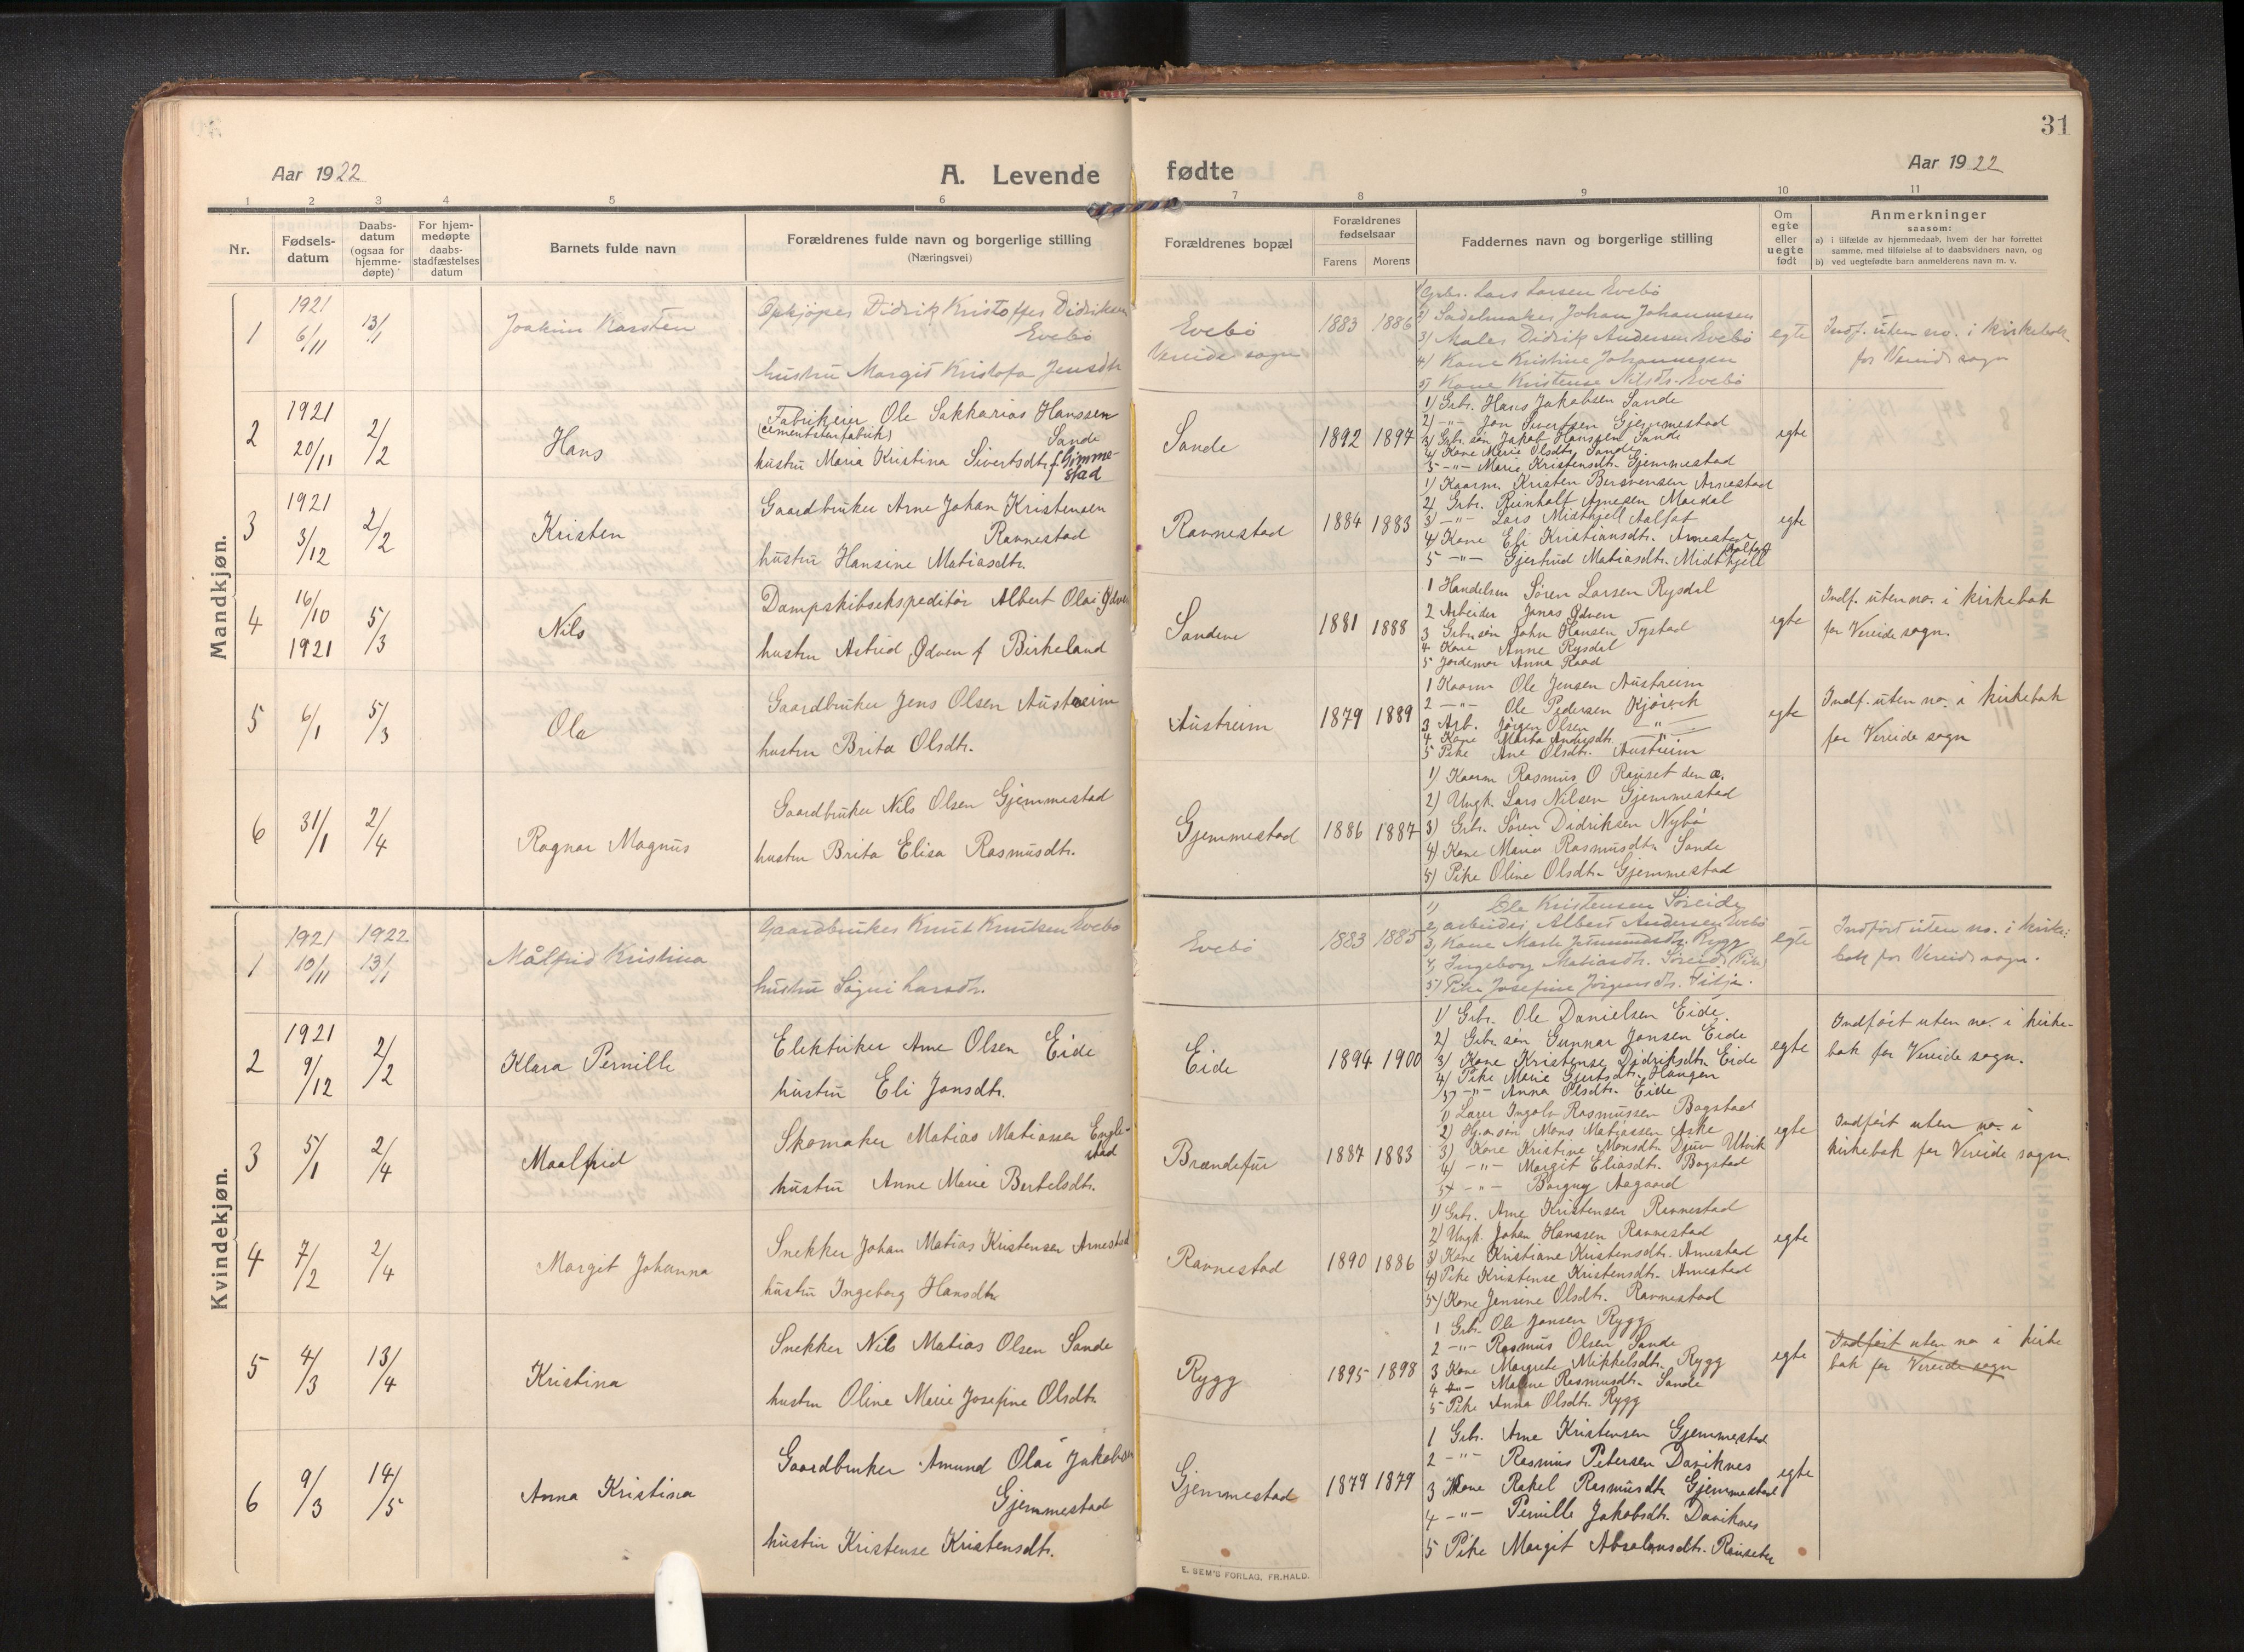 31
Aar 1922
A. Levende
fødte
Aar 1922
1 2 3 4 5 6 7 8 9 10 11
Nr.
Fødsels-
datum
Daabs-
datum
(ogsaa for
hjemme-
døpte)
For hjem-
medøpte
daabs-
stadfæstelses
datum
Barnets fulde navn
Forældrenes fulde navn og borgerlige stilling
(Næringsvei)
Forældrenes bopæl
Forældrenes
fødselsaar
Farens Morens
Faddernes navn og borgerlige stilling
Om
egte
eller
uegte
født
Anmerkninger
saasom:
a) i tilfælde av hjemmedaab, hvem der har forrettet
samme, med tilføielse af to daabsvidners navn, og
b) ved uegtefødte barn anmelderens navn m. v.
Mandkjøn.
1
1921
6/11
13/1
Joakim Karsten
Opkjøper Didrik Kristoffer Didriksen
Evebø
hustru Margit Kristofa Jensdtr
Evebø
Vereide sogn
1883 1886
1) Grbr. Lars Larsen Evebø
2) Sadelmaker Johan Johannesen
3) Maler Didrik Andersen Evebø
4) Kone Kristine Johannesen
5) Kone Kristense Nilsdtr. Evebø
egte
Indf. uten no. i kirkebok
for Vereid sogn
2
1921
20/11
2/2
Hans
Fabrikeier Ole Sakkarias Hanssen
(cementstenfabrik)
Sande
hustru Maria Kristina Sivertsdtr f. Gimme-
stad
Sande
1892 1897
1) Grbr. Hans Jakobsen Sande
2) -"- Jon Sivertsen Gjemmestad
3) Grbr. søn Jakob Hanssen Sande
4) Kone Marie Olsdtr. Sande
5 -"- Marie Kristensdtr. Gjemmestad
egte
3
1921
3/12
2/2
Kristen
Gaardbruker Arne Johan Kristensen
Ravnestad
hustru Hansine Matiasdtr.
Ravnestad
1884 1883
1) Kaarm. Kristen Bersvensen Arnestad
2) Grbr. Reinholt Arnesen Mardal
3) -"- Lars Midthjell Aalfot
4) Kone Eli Kristiansdtr. Arnestad
5 -"- Gjertrud Matiasdtr. Midthjell Aalfot
egte
4
16/10
1921
5/3
Nils
Dampskibsekspeditør Albert Olai Ødven
hustru Astrid Ødven f Birkeland
Sandene
1881 1888
1 Handelsm Søren Larsen Rysdal
2 Arbeider Jonas Ødven
3 Grbr. søn John Hansen Tystad
4 Kone Anne Rysdal
5 Jordemor Anna Raad
egte
Indf. uten no. i kirkebok
for Vereide sogn.
5
6/1
5/3
Ola
Gaardbruker Jens Olsen Austreim
hustru Brita Olsdtr.
Austreim
1879 1889
1 Kaarm Ole Jensen Austreim
2 -"- Ole Pedersen Kjørvik
3 Arb. Jørgen Olsen -"-
4 Kone Marta Andersdtr. -"-
5 Pike Ane Olsdtr. Austreim
egte
Indf. uten no. i kirkebok
for Vereide sogn
6
31/1
2/4
Ragnar Magnus
Gaardbruker Nils Olsen Gjemmestad
hustru Brita Elisa Rasmusdtr.
Gjemmestad
1886 1887
1) Kaarm Rasmus O Rauset den æ.
2) Ungk. Lars Nilsen Gjemmestad
3) Grbr. Søren Didriksen Nybø
4) Kone Marie Rasmusdtr Sande
5) Pike Oline Olsdtr. Gjemmestad
Kvindekjøn.
1
1921
10/11
1922
13/1
Målfrid Kristina
Gaardbruker Knut Knutsen Evebø
hustru Signi Larsdtr.
Evebø
1883 1885
1) Ole Kristensen Søreide
2) arbeider Albert Andersen Evebø
3) Kone Marte Rygg
4) Ingeborg Matiasdtr. Søreid (Pike)
5) Pike Josefine Jørgensdtr. Fitje.
egte
Indført uten no. i kirke-
bok for Vereid sogn.
2
1921
9/12
2/2
Klara Pernille
Elektriker Arne Olsen Eide
hustru Eli Jonsdtr.
Eide
1894 1900
1) Grbr. Ole Danielsen Eide.
2) Grbr. søn Gunnar Jonsen Eide
3) Kone Kristense Didriksdtr. Eide
4) Pike Marie Gjertsdtr. Haugen
5) -"- Anna Olsdtr. Eide
egte
Indført uten no. i kirke-
bok for Vereide sogn.
3
5/1
2/4
Maalfrid
Skomaker Matias Matiassen Engle-
stad
hustru Anne Marie Bertelsdtr.
Brændefur
1887 1883
1) Lærer Ingolv Rasmussen Bogstad
2) Grbr. søn Mons Matiassen Aske
3) Kone Kristine Monsdtr. Djuv Utvik
4) -"- Margit Eliasdtr. Bogstad
5) -"- Borgny Aagaard
egte
Indført uten no. i
kirkebok for Vereide sogn.
4
7/2
2/4
Margit Johanna
Snekker Johan Matias Kristensen Arnestad
hustru Ingeborg Hansdtr
Ravnestad
1890 1886
1) Grbr. Arne Kristensen Ravnestad
2) Ungk. Johan Hanssen Ravnestad
3) Kone Kristiane Kristensdtr. Arnestad
4) Pike Kristense Kristensdtr. Arnestad
5) Kone Jensine Olsdtr. Ravnestad
egte
5
4/3
13/4
Kristina
Snekker Nils Matias Olsen Sande
hustru Oline Marie Josefine Olsdtr.
Rygg
1895 1898
1 Grbr. Ole Jansen Rygg
2 -"- Rasmus Olsen Sande
3 Kone Margrete Mikkelsdtr. Rygg
4 -"- Malene Rasmusdtr. Sande
5 Pike Anna Olsdtr. Rygg
egte
Indført uten no i kirke
bok for Vereide sogn
6
9/3
14/5
Anna Kristina
Gaardbruker Amund Olai Jakobsen
Gjemmestad
hustru Kristense Kristensdtr.
Gjemmestad
1879 1879
1 Grbr. Arne Kristensen Gjemmestad
2 -"- Rasmus Petersen Daviknes
3 Kone Rakel Rasmusdtr. Gjemmestad
4 -"- Pernille Jakobsdtr. Daviknes
5 Pike Margit Absalonsdtr. Rauseter
egte
E. SEM'S FORLAG, FR.HALD.